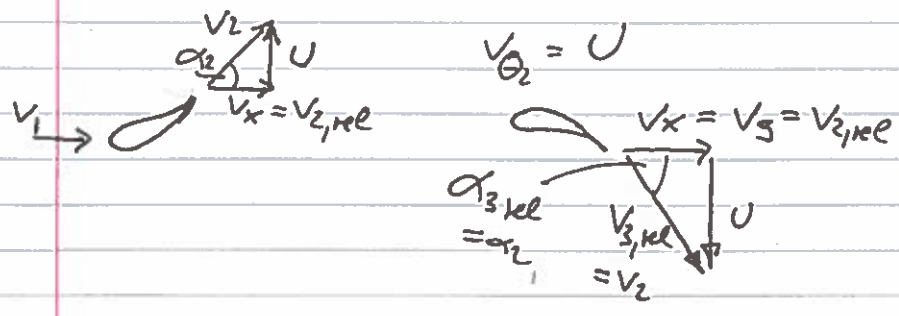 V₂
α₂
U
V_θ₂ = U
V₁
Vₓ = V₂,rel
Vₓ = V₃ = V₂,rel
α₃ rel
= α₂
V₃,rel
= V₂
U